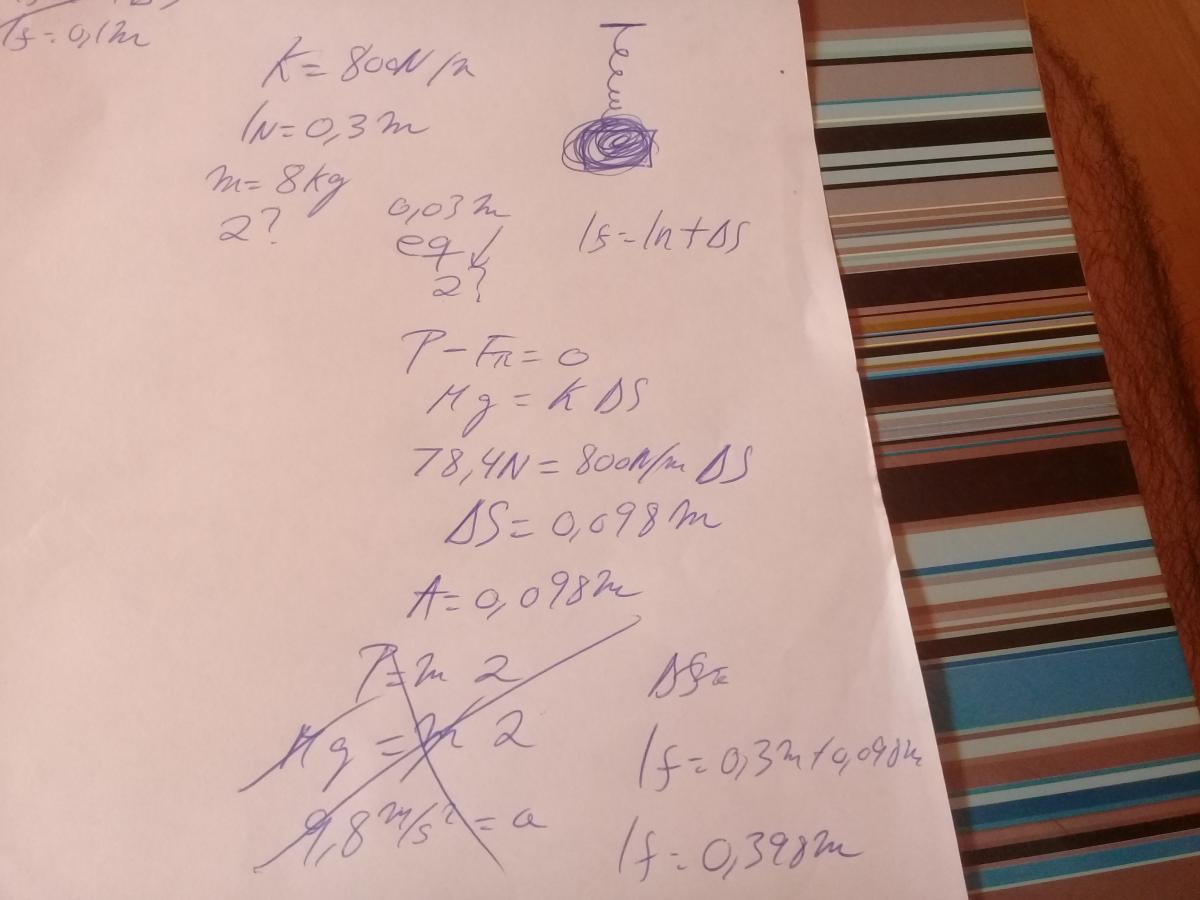 lf = 0,1m
K = 800N/m
lN = 0,3m
m = 8kg
2?
0,03m
eq ↓
2?
lf = ln + ΔS
P - Fn = 0
Mg = K ΔS
78,4N = 800N/m ΔS
ΔS = 0,098m
A = 0,098m
P = m 2
Mg = m 2
9,8 m/s² = a
lf = 0,3m + 0,098m
lf = 0,398m